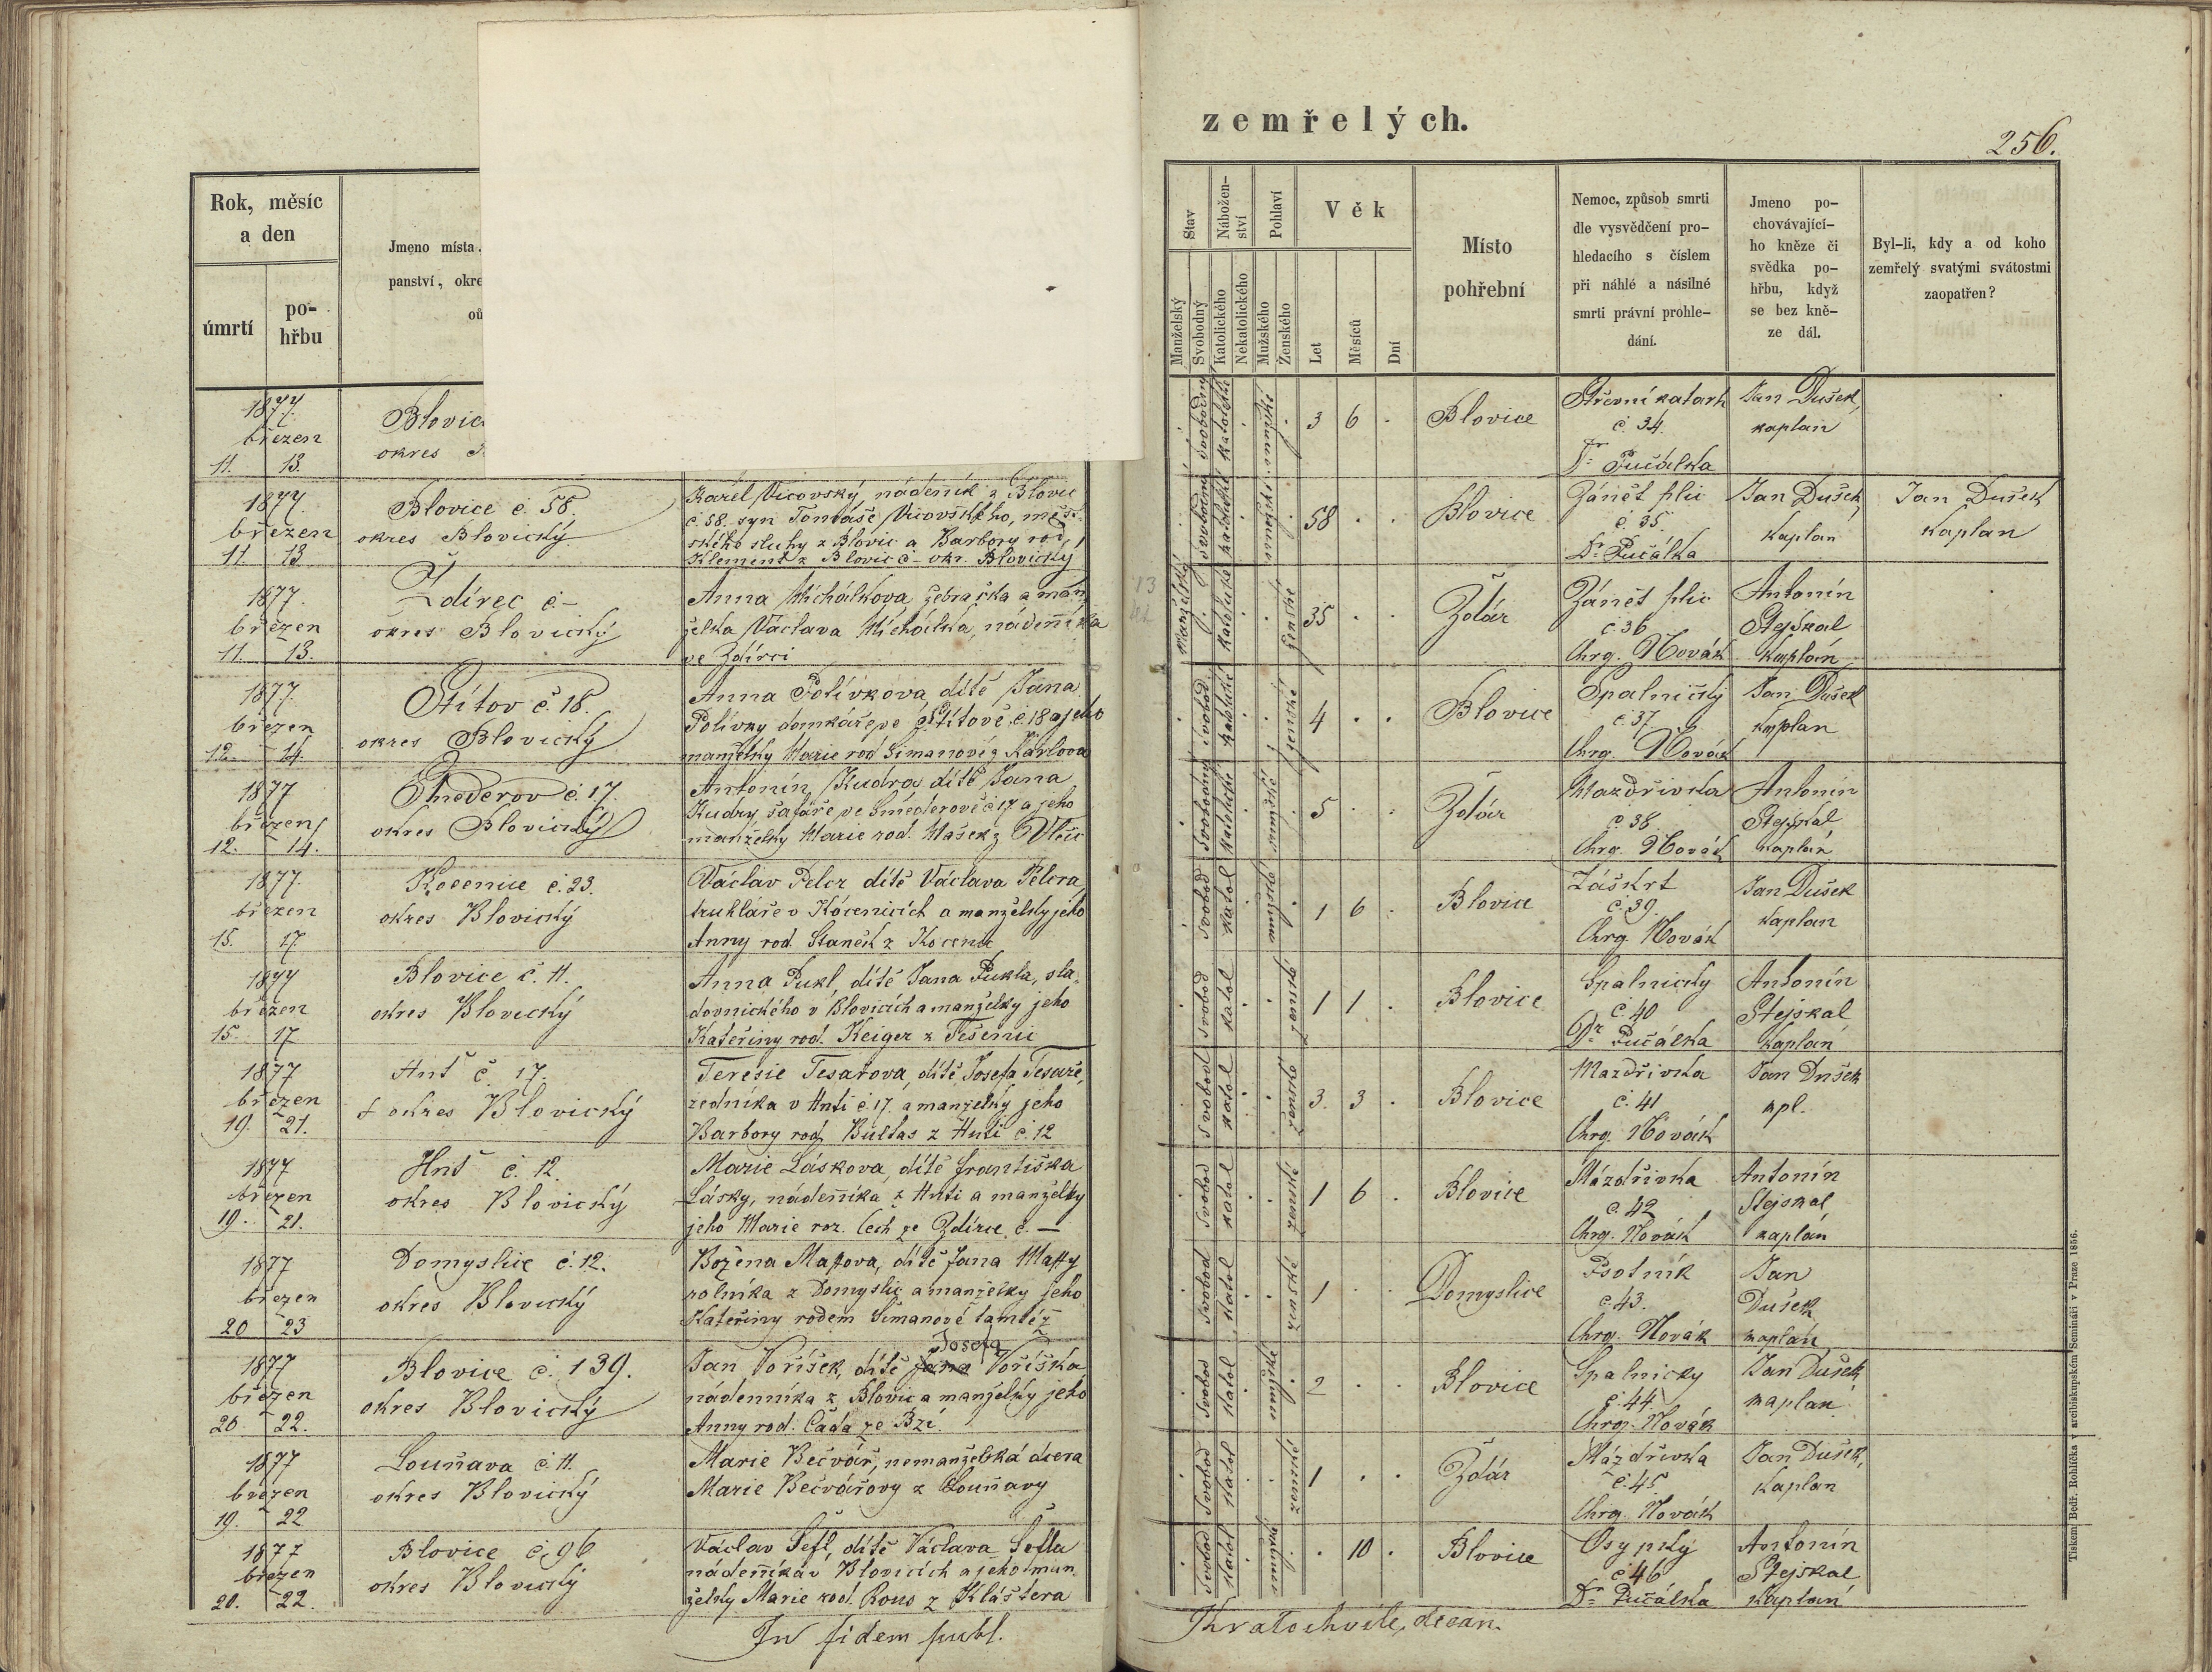 zemřelých.
256.
Rok, měsíc
a den
úmrtí
po-
hřbu
Jmeno místa
panství, okre
Stav
Manželský
Svobodný
Nábožen-
ství
Katolického
Nekatolického
Pohlaví
Mužského
Ženského
Věk
Let
Měsíců
Dní
Místo
pohřební
Nemoc, způsob smrti
dle vysvědčení pro-
hledacího s číslem
při náhlé a násilné
smrti právní prohle-
dání.
Jmeno po-
chovávající-
ho kněze či
svědka po-
hřbu, když
se bez kně-
ze dál.
Byl-li, kdy a od koho
zemřelý svatými svátostmi
zaopatřen?
1877.
březen
11. 13.
Blovic
okres
svobodný katolické mužské
3 6 .
Blovice
Střevní katarh
č. 34.
Dr Pučálka
Jan Dušek,
kaplan
1877.
březen
11. 13
Blovice č. 58.
okres Blovický
Karel Vicovský, nádeník z Blovic
č. 58. syn Tomáše Vicovského, měst-
ského sluhy z Blovic a Barbory rod.
Klement z Blovic č - okr. Blovický
svobodný katolické mužské
58 . .
Blovice
Zánět plic
č. 35.
Dr Pučálka
Jan Dušek
Kaplan
Jan Dušek
Kaplan
1877.
březen
11. 13.
Ždírec č. -
okres Blovický
Anna Michálkova žebračka a man-
želka Václava Michálka, nádeníka
ve Ždírci
Manželský katolické ženské
35 . .
Ždár
Zánět plic
č 36
Chrg. Novák
Antonín
Stejskal
Kaplán
1877.
březen
12. 14.
Štítov č. 18.
okres Blovický
Anna Polívkova, dítě Jana
Polívky domkáře ve Štítově č. 18 a jeho
manželky Marie rod Šimanové z Karlova
svobod. katolické ženské
4 . .
Blovice
Spalničky
č. 37
Chrg. Novák
Jan Dušek
kaplan
1877
březen
12. 14.
Směderov č. 17.
okres Blovický
Antonín Kudra, dítě Jana
Kudry, šafáře ve Směderově č 17 a jeho
manželky Marie rod. Mašek z Vlčic
svobodný katolické mužské
5 . .
Ždár
Mazdřivka
č. 38
Chrg. Novák
Antonín
Stejskal
kaplán
1877.
březen
15. 17.
Kocenice č. 23.
okres Blovický
Václav Pelcr dítě Václava Pelcra
truhláře v Kocenicích a manželky jeho
Anny rod. Staněk z Kocenic
svobod katol mužské
1 6 .
Blovice
Záškrt
č. 39.
Chrg. Novák
Jan Dušek
Kaplan
1877
březen
15. 17
Blovice č. 11.
okres Blovický
Anna Pukl, dítě Jana Pukla, sla-
dovnického v Blovicích a manželky jeho
Kateřiny rod. Keiger z Tešenic
svobod katol ženské
1 1 .
Blovice
Spalničky
č. 40
Dr Pučálka
Antonín
Stejskal
Kaplan
1877
březen
19. 21.
Huť č. 17.
okres Blovický
Teresie Tesařova, dítě Josefa Tesaře,
zedníka v Huti č. 17. a manželky jeho
Barbory rod. Bultas z Huti č. 12
svobod katol ženské
3. 3 .
Blovice
Mazdřivka
č. 41
Chrg. Novák
Jan Dušek
kpl.
1877
březen
19. 21.
Huť č. 12.
okres Blovický
Marie Láskova, dítě Františka
Lásky, nádeníka z Huti a manželky
jeho Marie roz. Čech ze Ždírce č. —
svobod katol ženské
1 6 .
Blovice
Mázdřivka
č. 42
Chrg. Novák
Antonín
Stejskal,
kaplán
1877
březen
20 23
Domyslice č. 12.
okres Blovický
Božena Mattova, dítě Jana Matty
rolníka z Domyslic a manželky jeho
Kateřiny rodem Šimanové tamtéž
svobod katol ženské
1 . .
Domyslice
Psotník
č. 43.
Chrg. Novák
Jan
Dušek
kaplán
1877
březen
20. 22.
Blovice č. 139.
okres Blovický
Josefa
Jan Voříšek, dítě Jana Voříška
nádenníka z Blovic a manželky jeho
Anny rod. Čada ze Bzí.
svobod katol mužské
2 . .
Blovice
Spalnicky
č. 44
Chrg. Novák
Jan Dušek
kaplan
1877
březen
19. 22
Louňava č. 11.
okres Blovický
Marie Bečvář, nemanželská dcera
Marie Bečvářovy z Louňavy
svobod katol ženské
1 . .
Ždár
Mázdřivka
č. 45.
Chrg. Novák
Jan Dušek,
Kaplan
1877
březen
20. 22.
Blovice č. 96
okres Blovický
Václav Šefl, dítě Václava Šefla
nádeníka v Blovicích a jeho man-
želky Marie rod. Rous z Kláštera
svobod katol mužské
. 10 .
Blovice
Osypky
č 46
Dr Pučálka
Antonín
Stejskal
Kaplan
In fidem publ.
Kratochvile, decan.
Tiskem Bedř. Rohlíčka v arcibiskupském Semináři v Praze 1856.